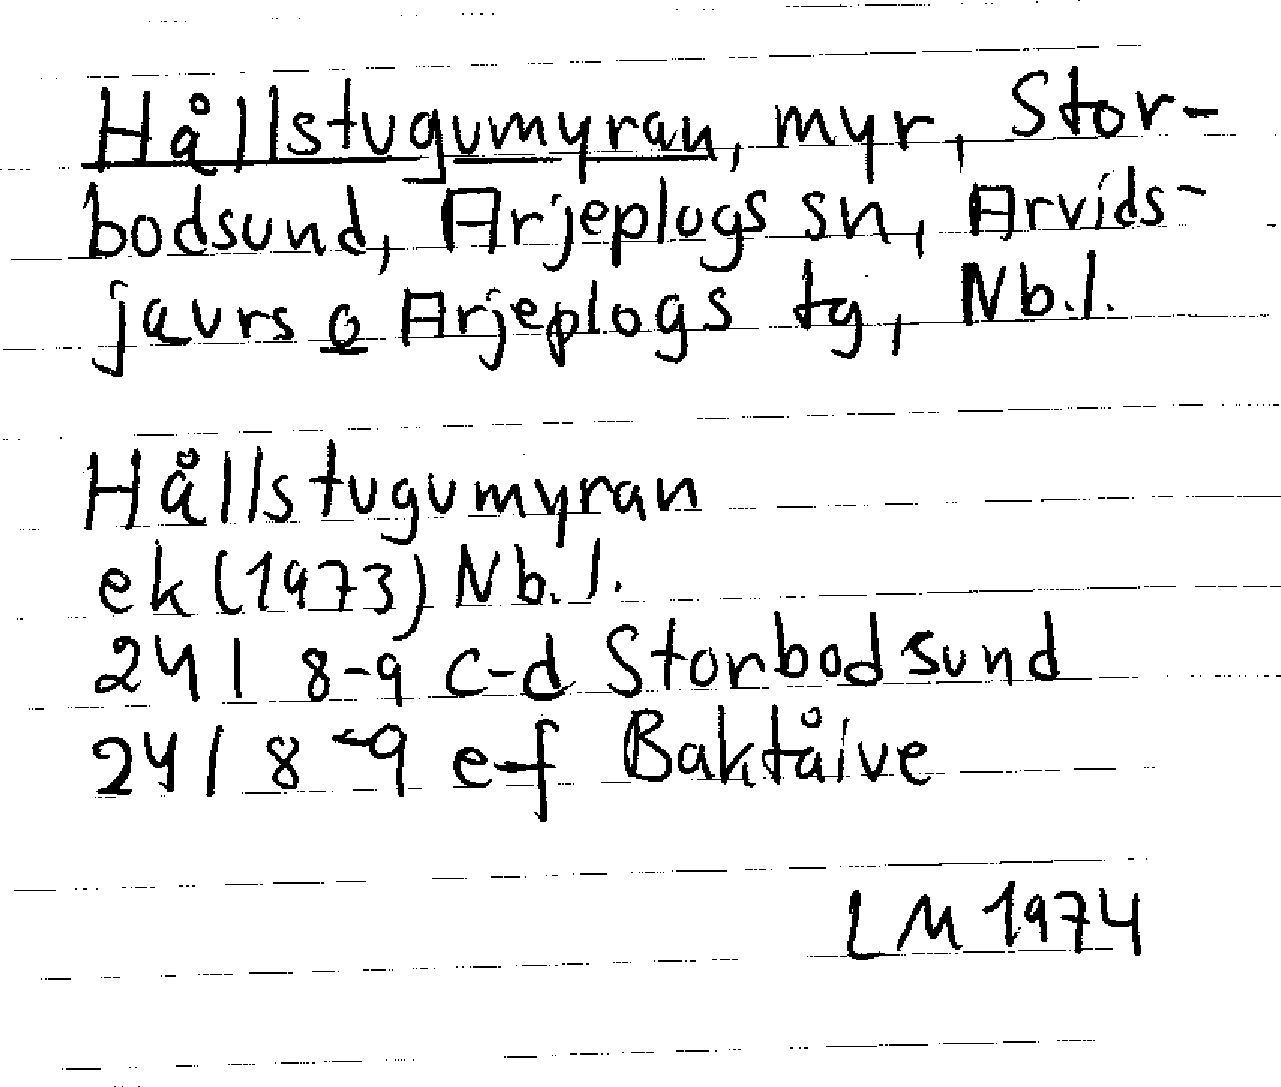 Hållstugumyran, myr, Stor-
bodsund, Arjeplogs sn, Arvids-
javrs o Arjeplogs tg, Nb.l.
Hållstugumyran
ek (1973) Nb.l.
24 I 8-9 c-d Storbodsund
24 I 8-9 e-f Baktåive
LM 1974